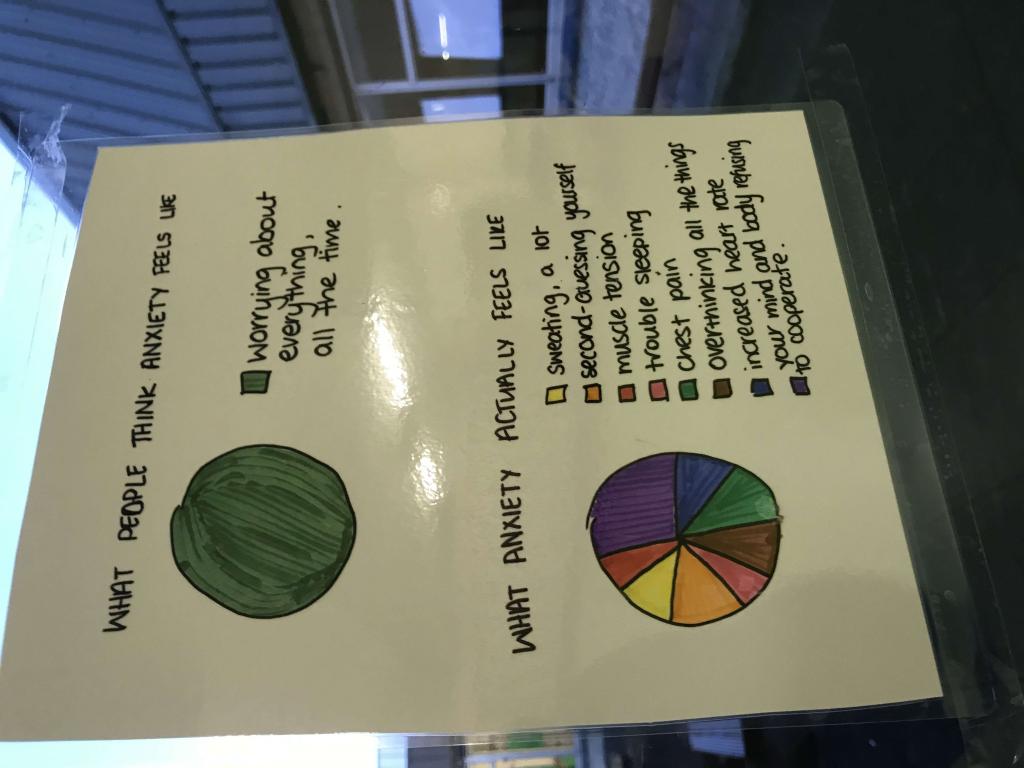 WHAT PEOPLE THINK ANXIETY FEELS LIKE
Worrying about
everything,
all the time.
WHAT ANXIETY ACTUALLY FEELS LIKE
sweating, a lot
second-guessing yourself
muscle tension
trouble sleeping
chest pain
overthinking all the things
increased heart rate
your mind and body refusing
to cooperate.